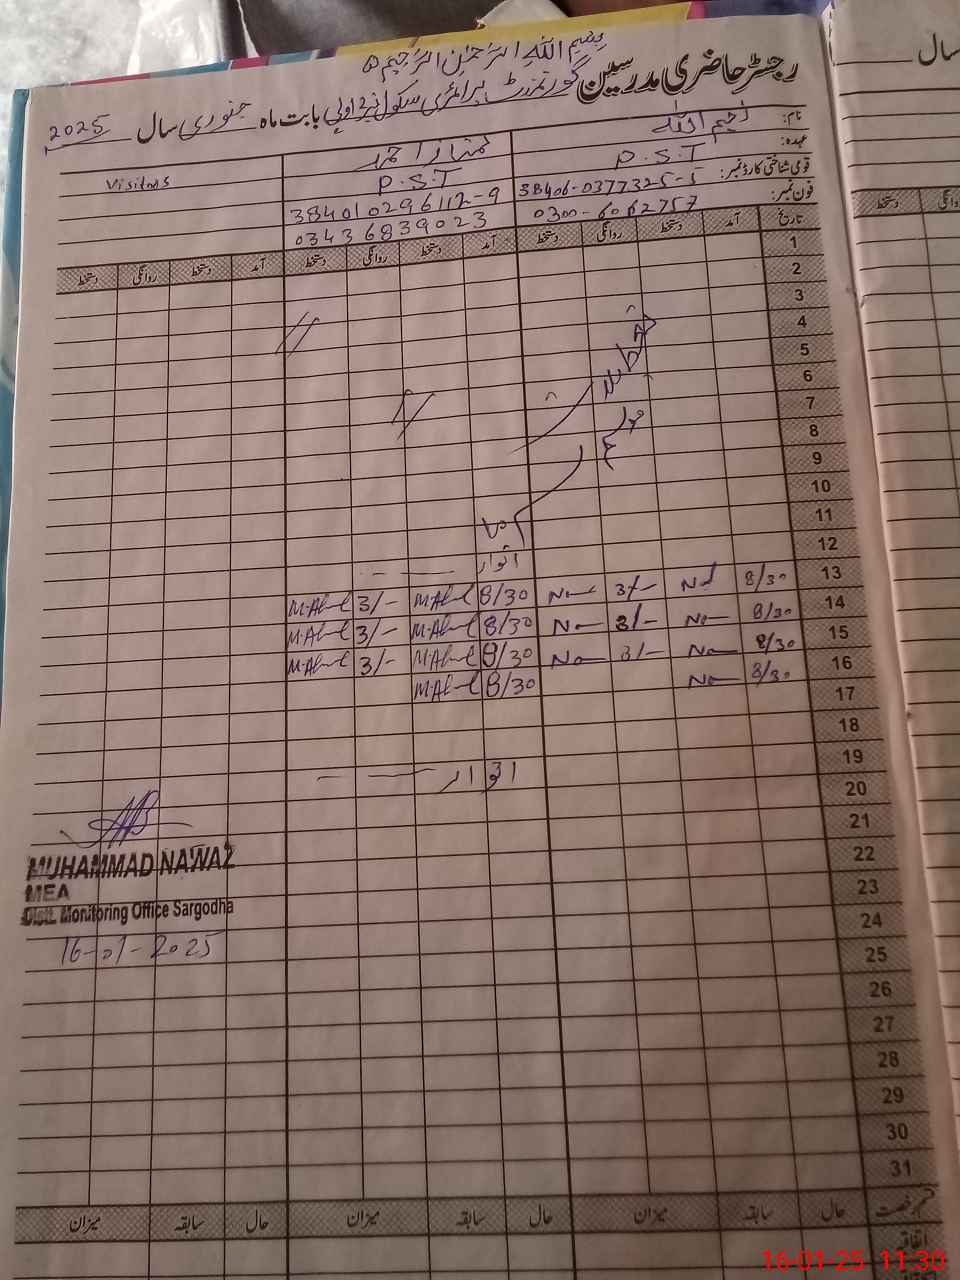 بسم اللہ الرحمن الرحیم
رجسٹر حاضری مدرسین گورنمنٹ پرائمری سکول بابت ماہ جنوری سال 2025
سال
نام:
ممتاز احمد
Visitors
عہدہ: P.S.T
P.S.T
قومی شناختی کارڈ نمبر: 38406-0377325-5
384010296112-9
فون نمبر: 0300-6062757
03436839023
تاریخ آمد دستخط روانگی دستخط آمد دستخط روانگی دستخط آمد دستخط روانگی دستخط
دستخط
1
2
3
4
5
6
7
8
9
10
11
12 اتوار
13 8/30 3/- 8/30 M.Abul 3/- M.Abul
14 8/30 3/- 8/30 M.Abul 3/- M.Abul
15 8/30 3/- 8/30 M.Abul 3/- M.Abul
16 8/30 8/30 M.Abul
17
18
19 اتوار
20
21
22
23
24
25
26
27
28
29
30
31
MUHAMMAD NAWAZ
MEA
Distt. Monitoring Office Sargodha
16-01-2025
قسم رخصت حال سابقہ میزان حال سابقہ میزان حال سابقہ میزان
اتفاقیہ
16-01-25 11:30